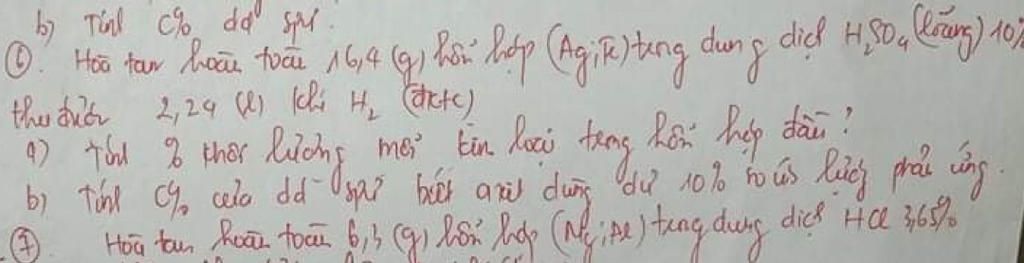 b) Tính C% dd spư.
⑥. Hoà tan hoàn toàn 16,4 (g) hỗn hợp (Ag; Fe) trong dung dịch H₂SO₄ (loãng) 10%
thu được 2,24 (l) khí H₂ (đktc)
a) Tính % khối lượng mỗi kim loại trong hỗn hợp đầu?
b) Tính C% của dd spư biết axit dùng dư 10% so với lượng phản ứng.
⑦ Hoà tan hoàn toàn 6,3 (g) hỗn hợp (Mg; Al) trong dung dịch HCl 3,65%